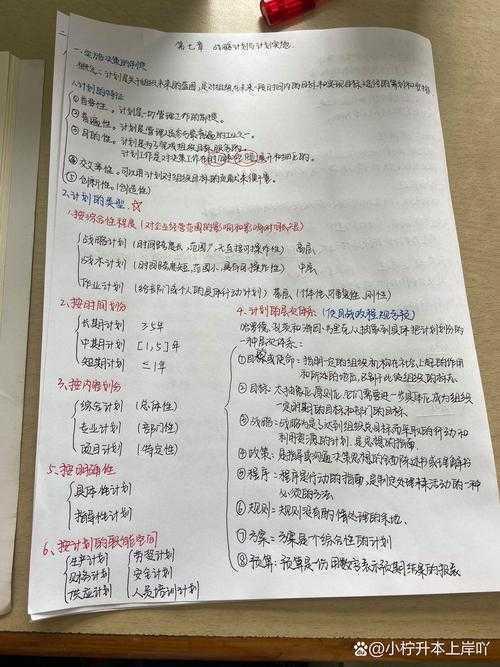 第七章 战略计划与计划实施
一.实施决策的制度
概念:计划是关于组织未来的蓝图,是对组织在未来一段时间内的目标和实现目标途径的策划和安排
1.计划的特征
①首要性。计划是一切管理工作的前提。
②普遍性。计划是管理人员参与最普遍的工作之一。
③目的性。计划是为了完成组织目标服务的。
计划工作是对决策工作在时间和空间上展开和细化的。
④交叉率性。可以用计划对组织目标的贡献来衡量。
⑤创新性。(创造性)
2.计划的类型 ☆
1.按综合性程度(对企业经营范围的影响和影响时间长短)
战略计划(时间跨度长,范围广,无直接可操作性)高层
战术计划(时间跨度短,范围小,具有可操作性)中层
作业计划(给部门或个人的具体行动计划)基层(个体性、可重复性、刚性)
2.按时间划分
长期计划 ≥5年
中期计划 [1,5]年
短期计划 ≤1年
3.按内容划分
综合计划(总体性)
专业计划(部门性)
项目计划(特定性)
5.按明确性
具体性计划
指导性计划
6.按计划的职能空间
生产计划 劳资计划
财务计划 安全计划
供应计划 人员培训计划
4.计划的层次体系(
哈罗德、孔茨和海因·韦里克从抽象到具体把计划划分为
一种层次体系:
①目标或使命:指明一定的组织机构在社会上起的作用
和所处的地位,
②目标:太抽象、太原则化,它们需要进一步具体化成为组织
一定时期的目标和部门的目标
③战略:战略为是了达到组织总目标而采取的行动和
利用资源的计划,是思想的指南
④政策:是指导或沟通决策思想的全面陈述书或理解书
⑤程序:程序是行动的指南,是制定处理未来活动的一种
必须的方法。
⑥规则:规则没有酌情处理的余地。
⑦方案:方案是个综合性的计划
⑧预算:预算是一份用数字表示预期结果的报表
小柠升本上岸吖